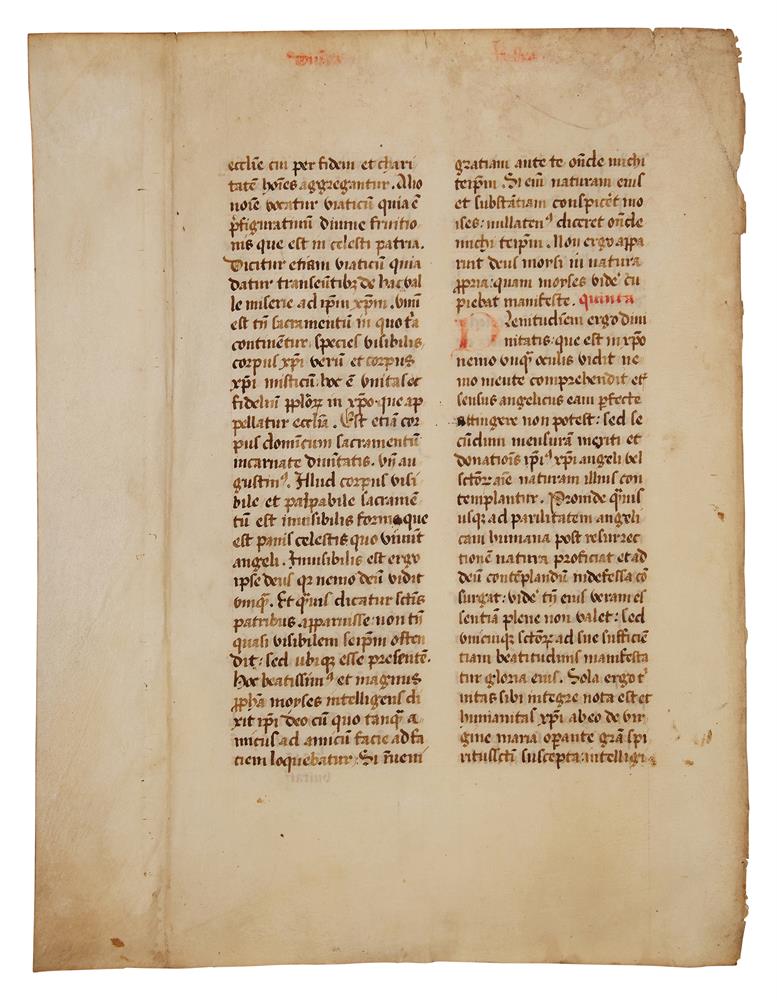 ecclīe cui per fidem et chari
tatē hoīes aggregantur. Alio
noīe vocatur viaticū quia ē
p̄figuratiuū diuine fruitio
nis que est in celesti patria.
Dicitur etiam viaticū quia
datur transeūtibꝫ de hac val
le miserie ad ip̄m xp̄m. vnū
est tn̄ sacramentū in quo t̄a
continētur, species visibilis
corpus xp̄i verū et corpus
xp̄i misticū: hoc ē vnitas et
fideliū pplōꝝ in xp̄o. que ap
pellatur ecclīa. Est etiā cor
pus dominicum sacramentū
incarnate diuītatis. vn̄ au
gustinꝰ. Illud corpus visi
bile et palpabile sacramē
tū est inuisibilis forme que
est panis celestis quo viuūt
angeli. Inuisibilis est ergo
ipse deus qꝛ nemo deū vidit
vnqꝫ. Et qͣuis dicatur sctīs
patribus apparuisse: non tn̄
quasi visibilem seip̄m osten
dit: sed ubiqꝫ esse presentē.
Hoc beatissimꝰ et magnus
ꝓpha moyses intelligens di
xit ip̄i deo cū quo tanqꝫ a
micus ad amicū facie ad fa
ciem loquebatur: Si īueni
gratiam ante te on̄de michi
teip̄m. Si em̄ naturam eius
et substātiam conspicēt mo
ises: nullatenꝰ diceret on̄de
michi teip̄m. Non ergo appa
ruit deus moysi in natura
ꝓpria: quam moyses vide' cu
piebat manifeste. quinta
Plenitudiem ergo diui
nitatis que est in xp̄o
nemo vnqꝫ oculis vidit ne
mo mente comprehendit et
sensus angelicus eam ꝑfecte
attingere non potest: sed se
cūdum mensurā meriti et
donatiōis ip̄iꝰ xp̄i angeli vel
sctōꝝ aīe naturam illius con
templantur. Proinde qͣuis
usqꝫ ad parilitatem angeli
cam humana post resurrec
tionē natura proficiat et ad
deū contēplandū indefessa cō
surgat: vide' tn̄ eius veram es
sentiā plene non valet: sed
vnicuiqꝫ sctōꝝ ad sue sufficiē
tiam beatitudinis manifesta
tur gloria eius. Sola ergo t'
nitas sibi integre nota est et
humanitas xp̄i ab eo de vir
gine maria oꝑante grā spi
ritussctī suscepta: intelligi